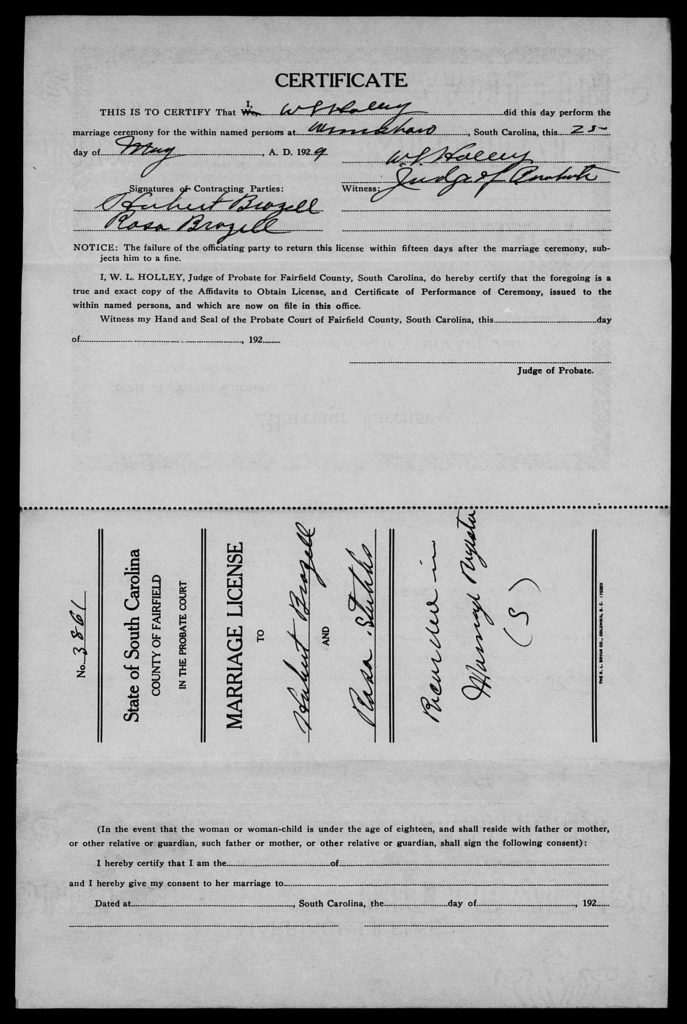 CERTIFICATE
THIS IS TO CERTIFY That I, We, W L Holley did this day perform the
marriage ceremony for the within named persons at Winnsboro, South Carolina, this 25
day of May, A. D. 1929
W L Holley
Signatures of Contracting Parties: Witness: Judge of Probate
Hubert Brazell
Rosa Brazell
NOTICE: The failure of the officiating party to return this license within fifteen days after the marriage ceremony, sub-
jects him to a fine.
I, W. L. HOLLEY, Judge of Probate for Fairfield County, South Carolina, do hereby certify that the foregoing is a
true and exact copy of the Affidavits to Obtain License, and Certificate of Performance of Ceremony, issued to the
within named persons, and which are now on file in this office.
Witness my Hand and Seal of the Probate Court of Fairfield County, South Carolina, this day
of , 192
Judge of Probate.
No. 3861
State of South Carolina
COUNTY OF FAIRFIELD
IN THE PROBATE COURT
MARRIAGE LICENSE
TO
Hubert Brazell
AND
Rosa Stubbs
Recorded in
Marriage Register
(S)
THE R. L. BRYAN CO., COLUMBIA, S. C.
(In the event that the woman or woman-child is under the age of eighteen, and shall reside with father or mother,
or other relative or guardian, such father or mother, or other relative or guardian, shall sign the following consent):
I hereby certify that I am the of
and I hereby give my consent to her marriage to
Dated at , South Carolina, the day of , 192